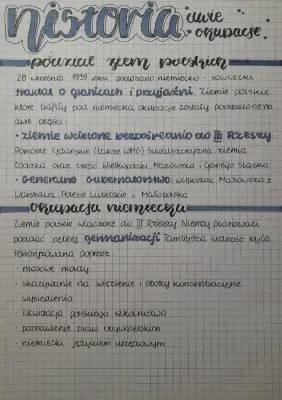 historia dwie okupacje
podział ziem polskich
28 września 1939 roku podpisano niemiecko - sowiecki
traktat o granicach i przyjaźni. Ziemie polskie
które trafiły pod niemiecką okupację zostały podzielone na
dwie części:
• ziemie wcielone bezpośrednio do III Rzeszy
Pomorze Gdańskie (także WMG) Suwalszczyzna, ziemia
łódzka oraz część Wielkopolski Mazowsza i Górnego Śląska
• Generalne Gubernatorstwo, większość Mazowsza z
Warszawą, Polesie Lubelskie i Małopolska
okupacja niemiecka
Ziemie polskie włączone do III Rzeszy Niemcy planowali
poddać pełnej germanizacji. Tamtejsza ludność była
terroryzowana poprzez:
• masowe mordy
• skazywanie na więzienie i obozy koncentracyjne
• wysiedlenia
• likwidacja polskiego szkolnictwa
• pozbawienie praw obywatelskich
• niemiecki językiem urzędowym